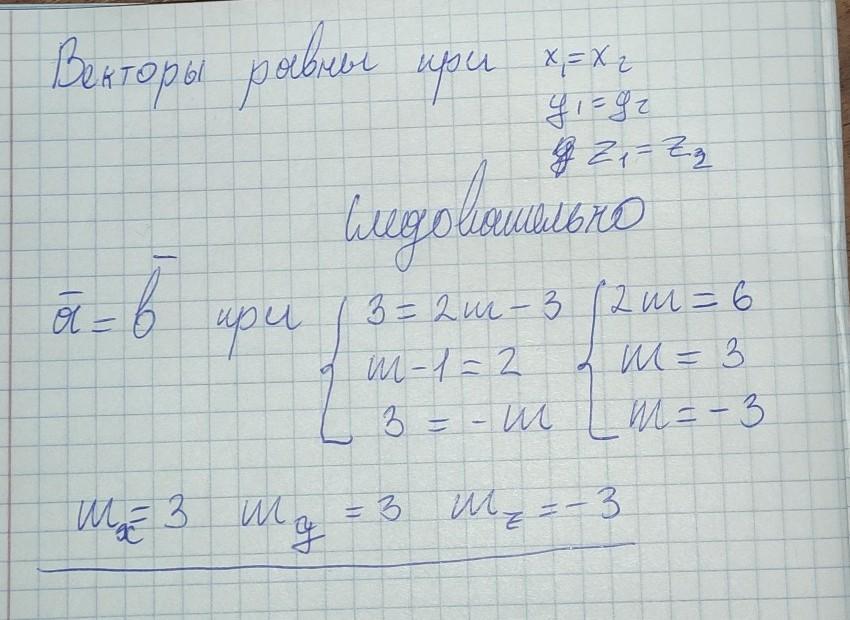 Векторы равны при x₁=x₂
y₁=y₂
z₁=z₂
следовательно
ā = b̄ при { 3 = 2m - 3 { 2m = 6
m - 1 = 2 m = 3
3 = - m m = - 3
mₓ = 3 m_y = 3 m_z = -3